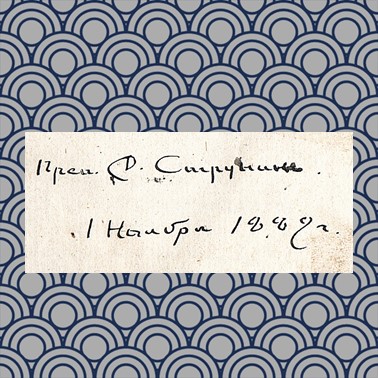 Преп. Д. Струнинъ.
1 Ноября 1889г.